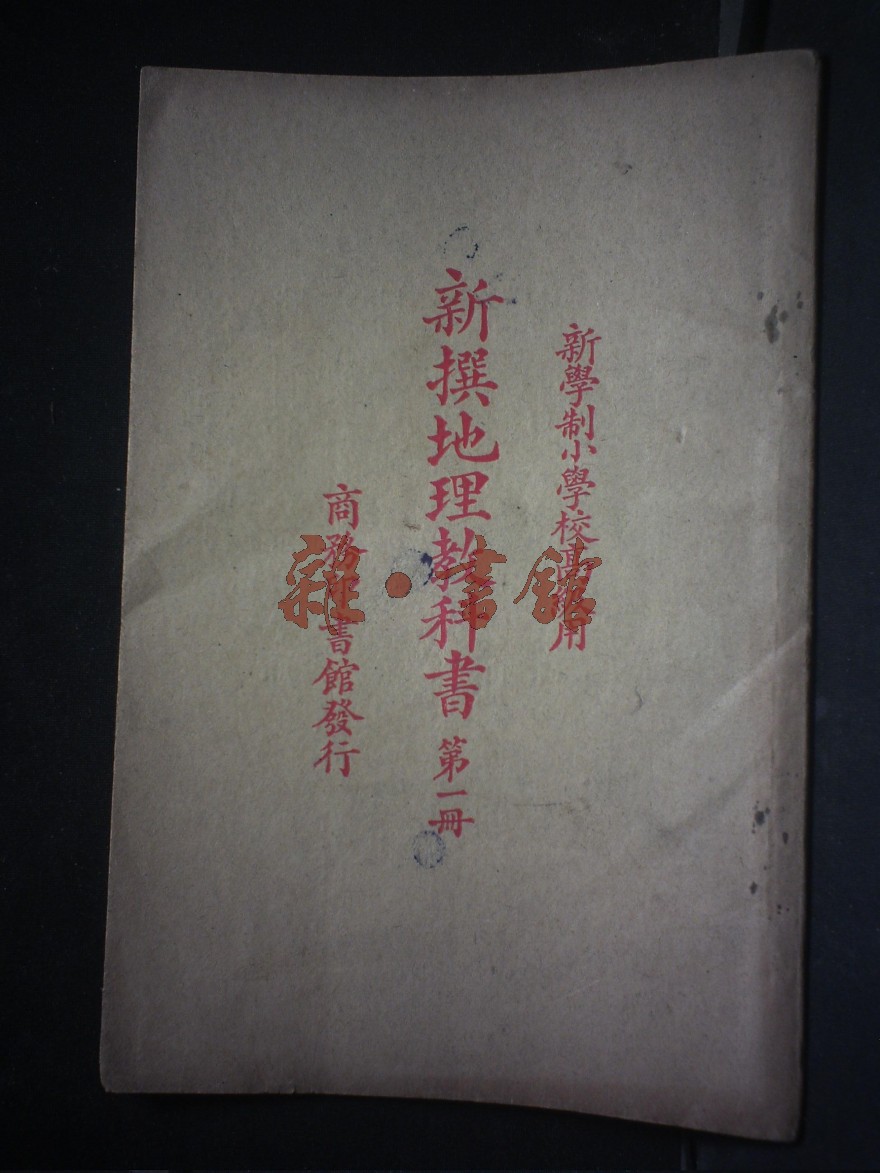 新學制小學校高級用
新撰地理教科書 第一冊
商務印書館發行
雜·書館